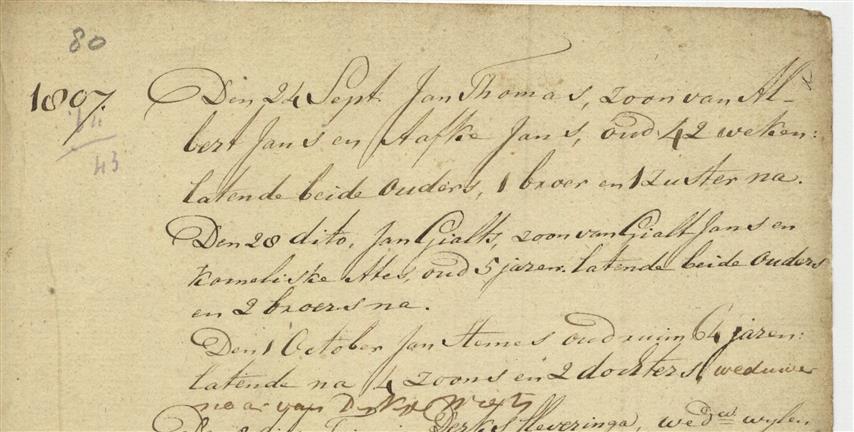 80
1807.
43
Den 24 Sept. Jan Thomas, zoon van Al-
bert Jans en Aafke Jans, oud 42 weken:
latende beide ouders, 1 broer en 1 zuster na.
Den 28 dito, Jan Gialts, zoon van Gialt Jans en
Korneliske Ates, oud 5 jaren. latende beide ouders
en 2 broers na.
Den 1 October Jan Hemes oud ruim 64 jaren:
latende na 4 zoons en 2 dochters, weduwe
naar van
Derks Heveringa, wed.w wylen